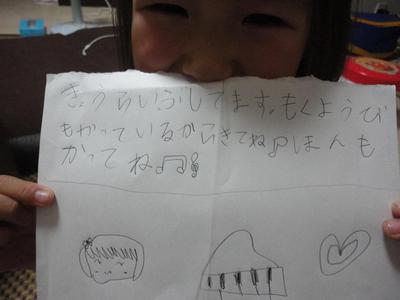 きょうらいぶしてます。もくようび
もやっているからきてね♪ほんも
かってね♪♫𝄞